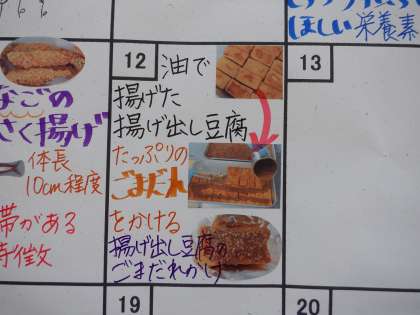 ほしい栄養素
12
油で
揚げた
揚げ出し豆腐
たっぷりの
ごまだれ
をかける
揚げ出し豆腐の
ごまだれがけ
13
なごの
さく揚げ
体長
10cm程度
帯がある
特徴
19
20